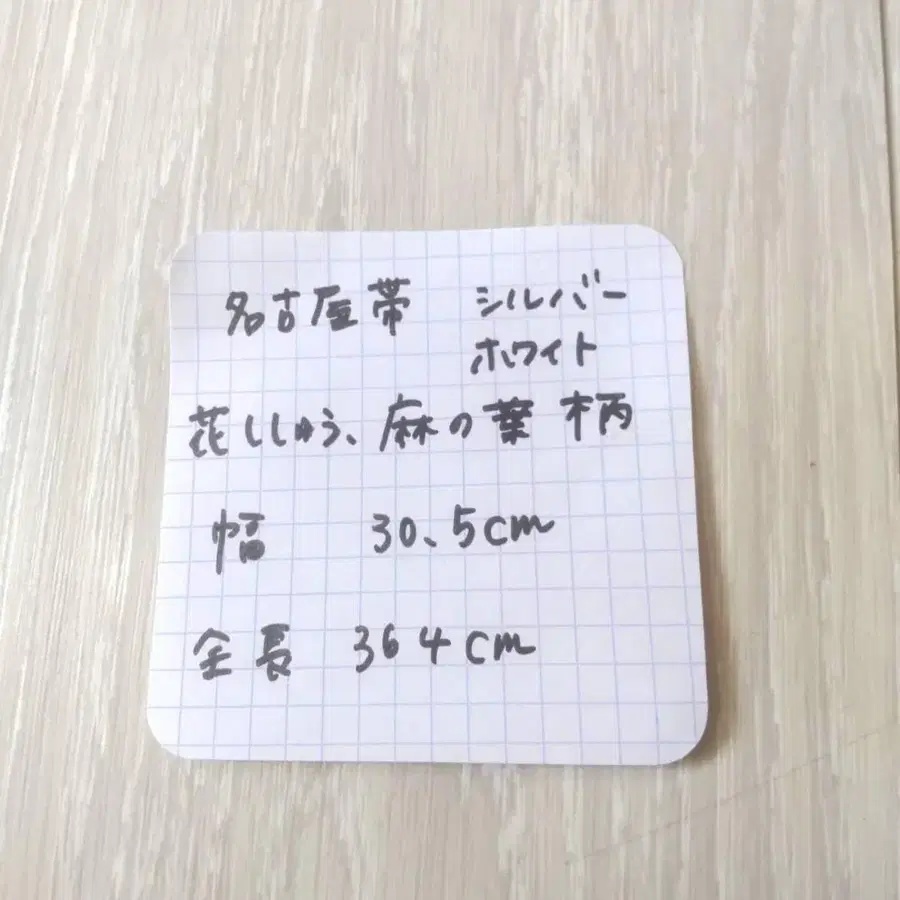 名古屋帯 シルバー
ホワイト
花ししゅう、麻の葉 柄
幅 30.5cm
全長 364cm